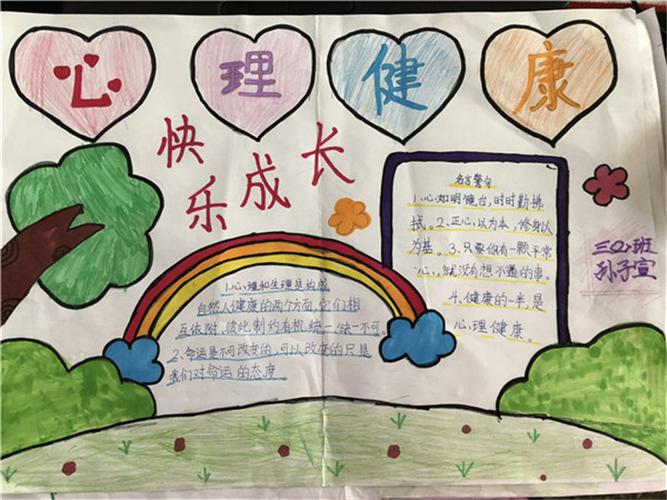 心理健康
快乐成长
名言警句
1、心如明镜台,时时勤拂
拭。2、正心以为本,修身以
为基。3、只要你有一颗平常
心,就没有想不通的事。
4、健康的一半是
心理健康。
三(2)班
孙子宣
1、心理和生理是构成
自然人健康的两个方面,它们相
互依附,彼此制约有机统一缺一不可。
2、命运是不可改变的,可以改变的只是
我们对命运的态度